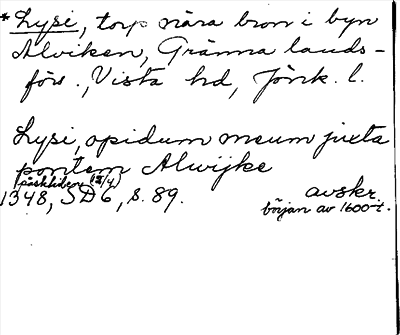 * Lysi, torp nära bron i byn
Alviken, Gränna lands-
förs., Vista hd, Jönk. l.
Lysi, opidum meum juxta
pontem Alwijke
påsktiden (13/4)
1348, SD 6, s. 89. avskr.
början av 1600-t.